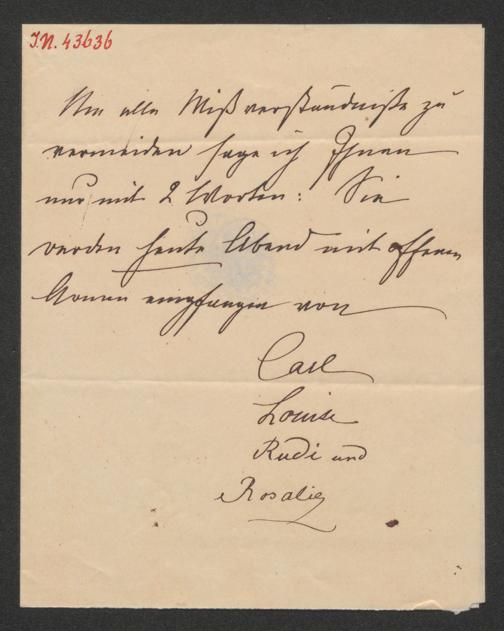 J.N. 43636
Um alle Mißverständniße zu
vermeiden sage ich Ihnen
nur mit 2 Worten: Sie
werden heute Abend mit offenen
Armen empfangen von
Carl
Louise
Rudi und
Rosalie